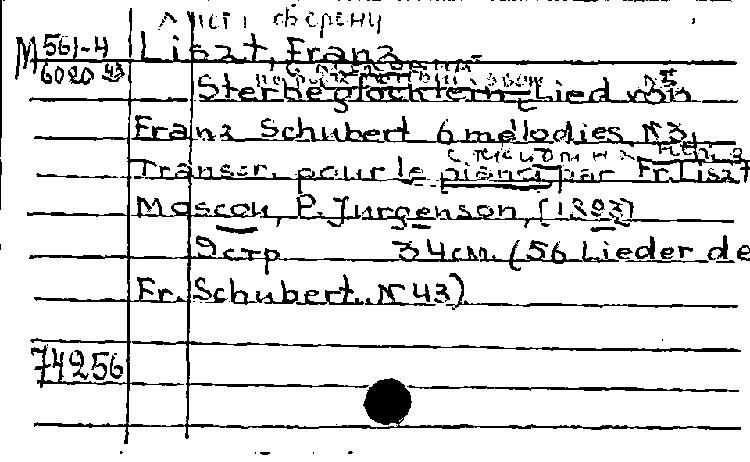 Лист сверену
М 561-4
6020 43
Liszt, Franz
Sterbeglöcklein=Lied von
Franz Schubert 6 mélodies, N3,
Transcr. pour le piano par Fr. Liszt
Moscou, P. Jurgenson, [1893]
9 стр 34 см. (56 Lieder de
Fr. Schubert. N 43).
74256